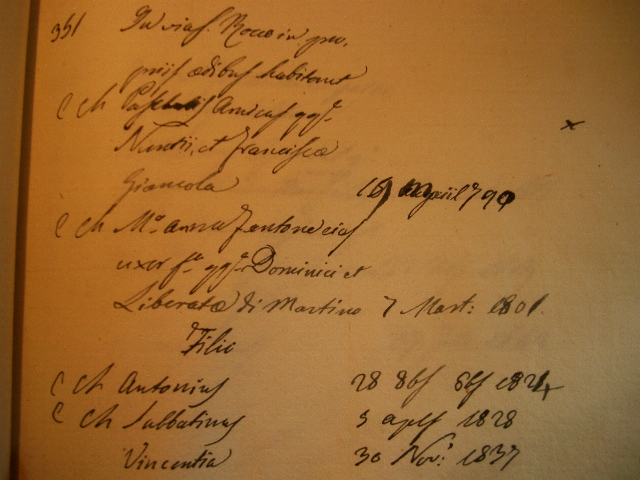 351 In via S. Rocco in pro,
priis ædibus habitant
C Ch Paschalis Amicus qq.
Nuntii, et Franciscæ
Giancola 19 April 790
x
C Ch M.ª Anna Fantone ejus
uxor f.ª qq.m Dominici et
Liberatæ di Martino 7 Mart: 1801.
Filii
C Ch Antonius 28 8bs 1824
C Ch Sabbatinus 5 apls 1828
Vincentia 30 Nov: 1837